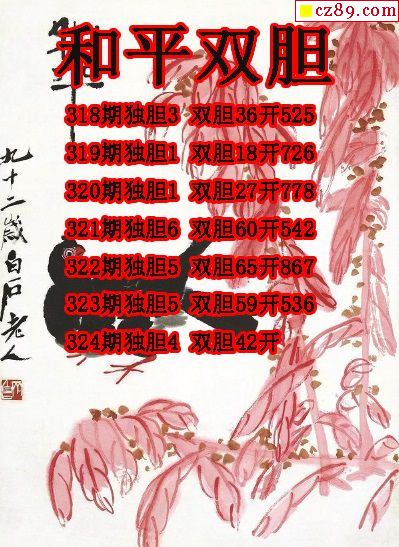 cz89.com
和平双胆
318期独胆3 双胆36开525
319期独胆1 双胆18开726
320期独胆1 双胆27开778
321期独胆6 双胆60开542
322期独胆5 双胆65开867
323期独胆5 双胆59开536
324期独胆4 双胆42开
九十二岁白石老人